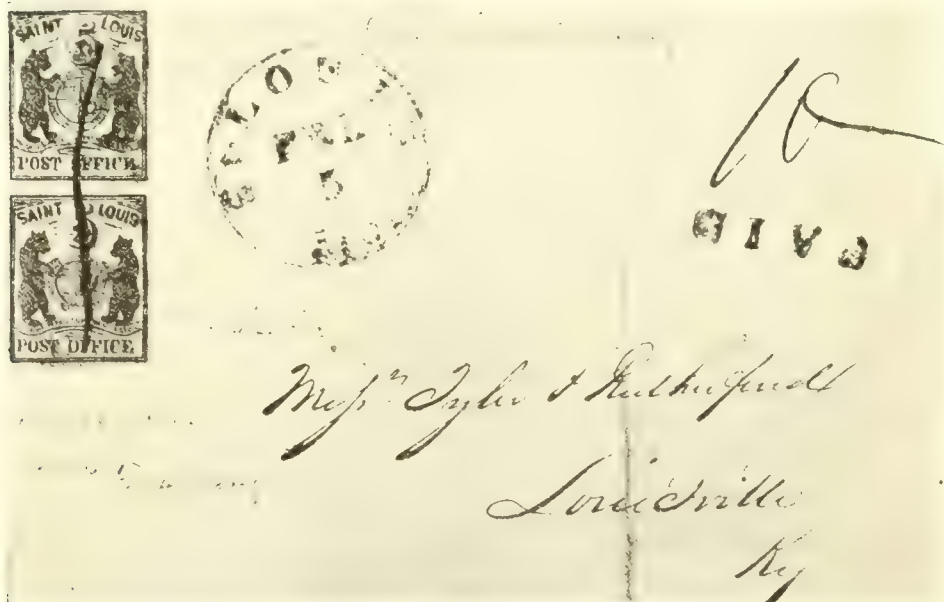 SAINT LOUIS
POST OFFICE
SAINT LOUIS
POST OFFICE
5
10
PAID
Messrs Tyler & Rutherfurd
Louisville
Ky